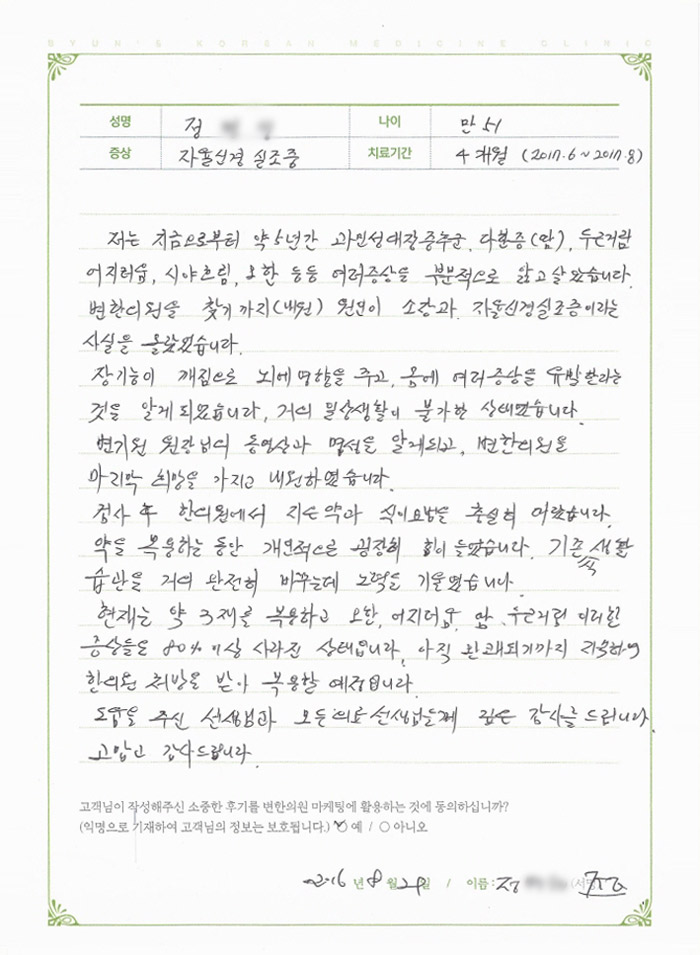 BYUN'S KOREAN MEDICINE CLINIC
성명 정 나이 만 51
증상 자율신경 실조증 치료기간 4 개월 (2017.6 ~ 2017.8)
저는 지금으로부터 약 5년간 과민성대장증후군, 다한증(땀), 두근거림
어지러움, 시야흐림, 오한 등등 여러증상을 부분적으로 앓고 살았습니다.
변한의원을 찾기 까지(내원) 원인이 소장과 자율신경실조증이라는
사실을 몰랐었습니다.
장기능이 깨짐으로 뇌에 영향을 주고, 몸에 여러증상을 유발한다는
것을 알게 되었습니다, 거의 일상생활이 불가한 상태였습니다.
변기원 원장님의 동영상과 명성을 알게되고, 변한의원을
마지막 희망을 가지고 내원하였습니다.
검사 후 한의원에서 지은 약과 식이요법을 충실히 따랐습니다.
약을 복용하는 동안 개인적으로 굉장히 힘이 들었습니다. 기존 생활
습관을 거의 완전히 바꾸는데 노력을 기울였습니다.
현재는 약 3제를 복용하고 오한, 어지러움, 땀, 두근거림 이러한
증상들은 80% 이상 사라진 상태입니다, 아직 완쾌되기까지
한의원 처방을 받아 복용할 예정입니다.
도움을 주신 선생님과 모든의료선생님들께 깊은 감사를 드립니다.
고맙고 감사드립니다.
고객님이 작성해주신 소중한 후기를 변한의원 마케팅에 활용하는 것에 동의하십니까?
(익명으로 기재하여 고객님의 정보는 보호됩니다.) ○ 예 / ○ 아니오
2016 년 8 월 29 일 / 이름 : 정 (서명)